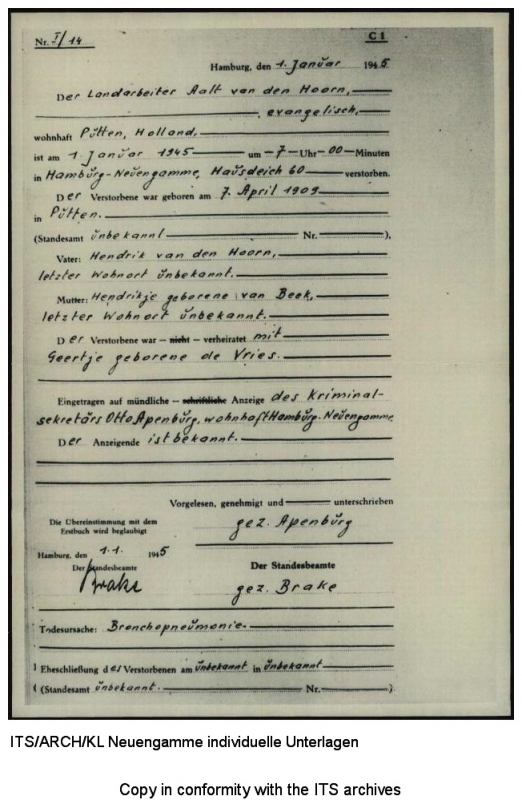 Nr. I/14 C 1
Hamburg, den 1. Januar 1945
Der Landarbeiter Aalt van den Hoorn,
evangelisch,
wohnhaft Pütten, Holland,
ist am 1. Januar 1945 um 7 Uhr 00 Minuten
in Hamburg-Neuengamme, Hausdeich 60 verstorben.
Der Verstorbene war geboren am 7. April 1909
in Pütten.
(Standesamt unbekannt Nr. ),
Vater: Hendrik van den Hoorn,
letzter Wohnort unbekannt.
Mutter: Hendrikje geborene van Beek,
letzter Wohnort unbekannt.
Der Verstorbene war – nicht – verheiratet mit
Geertje geborene de Vries.
Eingetragen auf mündliche – schriftliche Anzeige des Kriminal-
sekretärs Otto Apenburg, wohnhaft Hamburg-Neuengamme
Der Anzeigende ist bekannt.
Vorgelesen, genehmigt und unterschrieben
Die Übereinstimmung mit dem
Erstbuch wird beglaubigt
gez. Apenburg
Hamburg, den 1.1. 1945
Der Standesbeamte
Brake
Der Standesbeamte
gez. Brake
Todesursache: Bronchopneumonie.
Eheschließung des Verstorbenen am unbekannt in unbekannt
(Standesamt unbekannt. Nr. )
ITS/ARCH/KL Neuengamme individuelle Unterlagen
Copy in conformity with the ITS archives